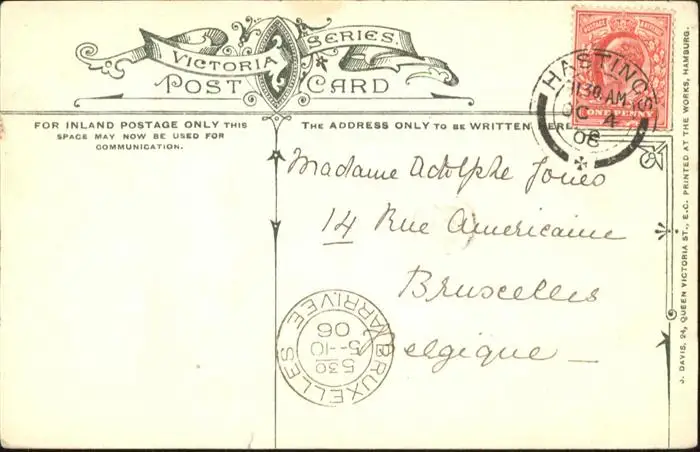 VICTORIA SERIES.
POST CARD
FOR INLAND POSTAGE ONLY THIS
SPACE MAY NOW BE USED FOR
COMMUNICATION.
THE ADDRESS ONLY TO BE WRITTEN HERE.
POSTAGE
ONE PENNY
HASTINGS
OC 4
06
Madame Adolphe Jones
14 Rue Americaine
Bruxelles
Belgique
BRUXELLES
ARRIVEE
530
5-10
06
J. DAVIS, 24, QUEEN VICTORIA ST., E.C. PRINTED AT THE WORKS, HAMBURG.